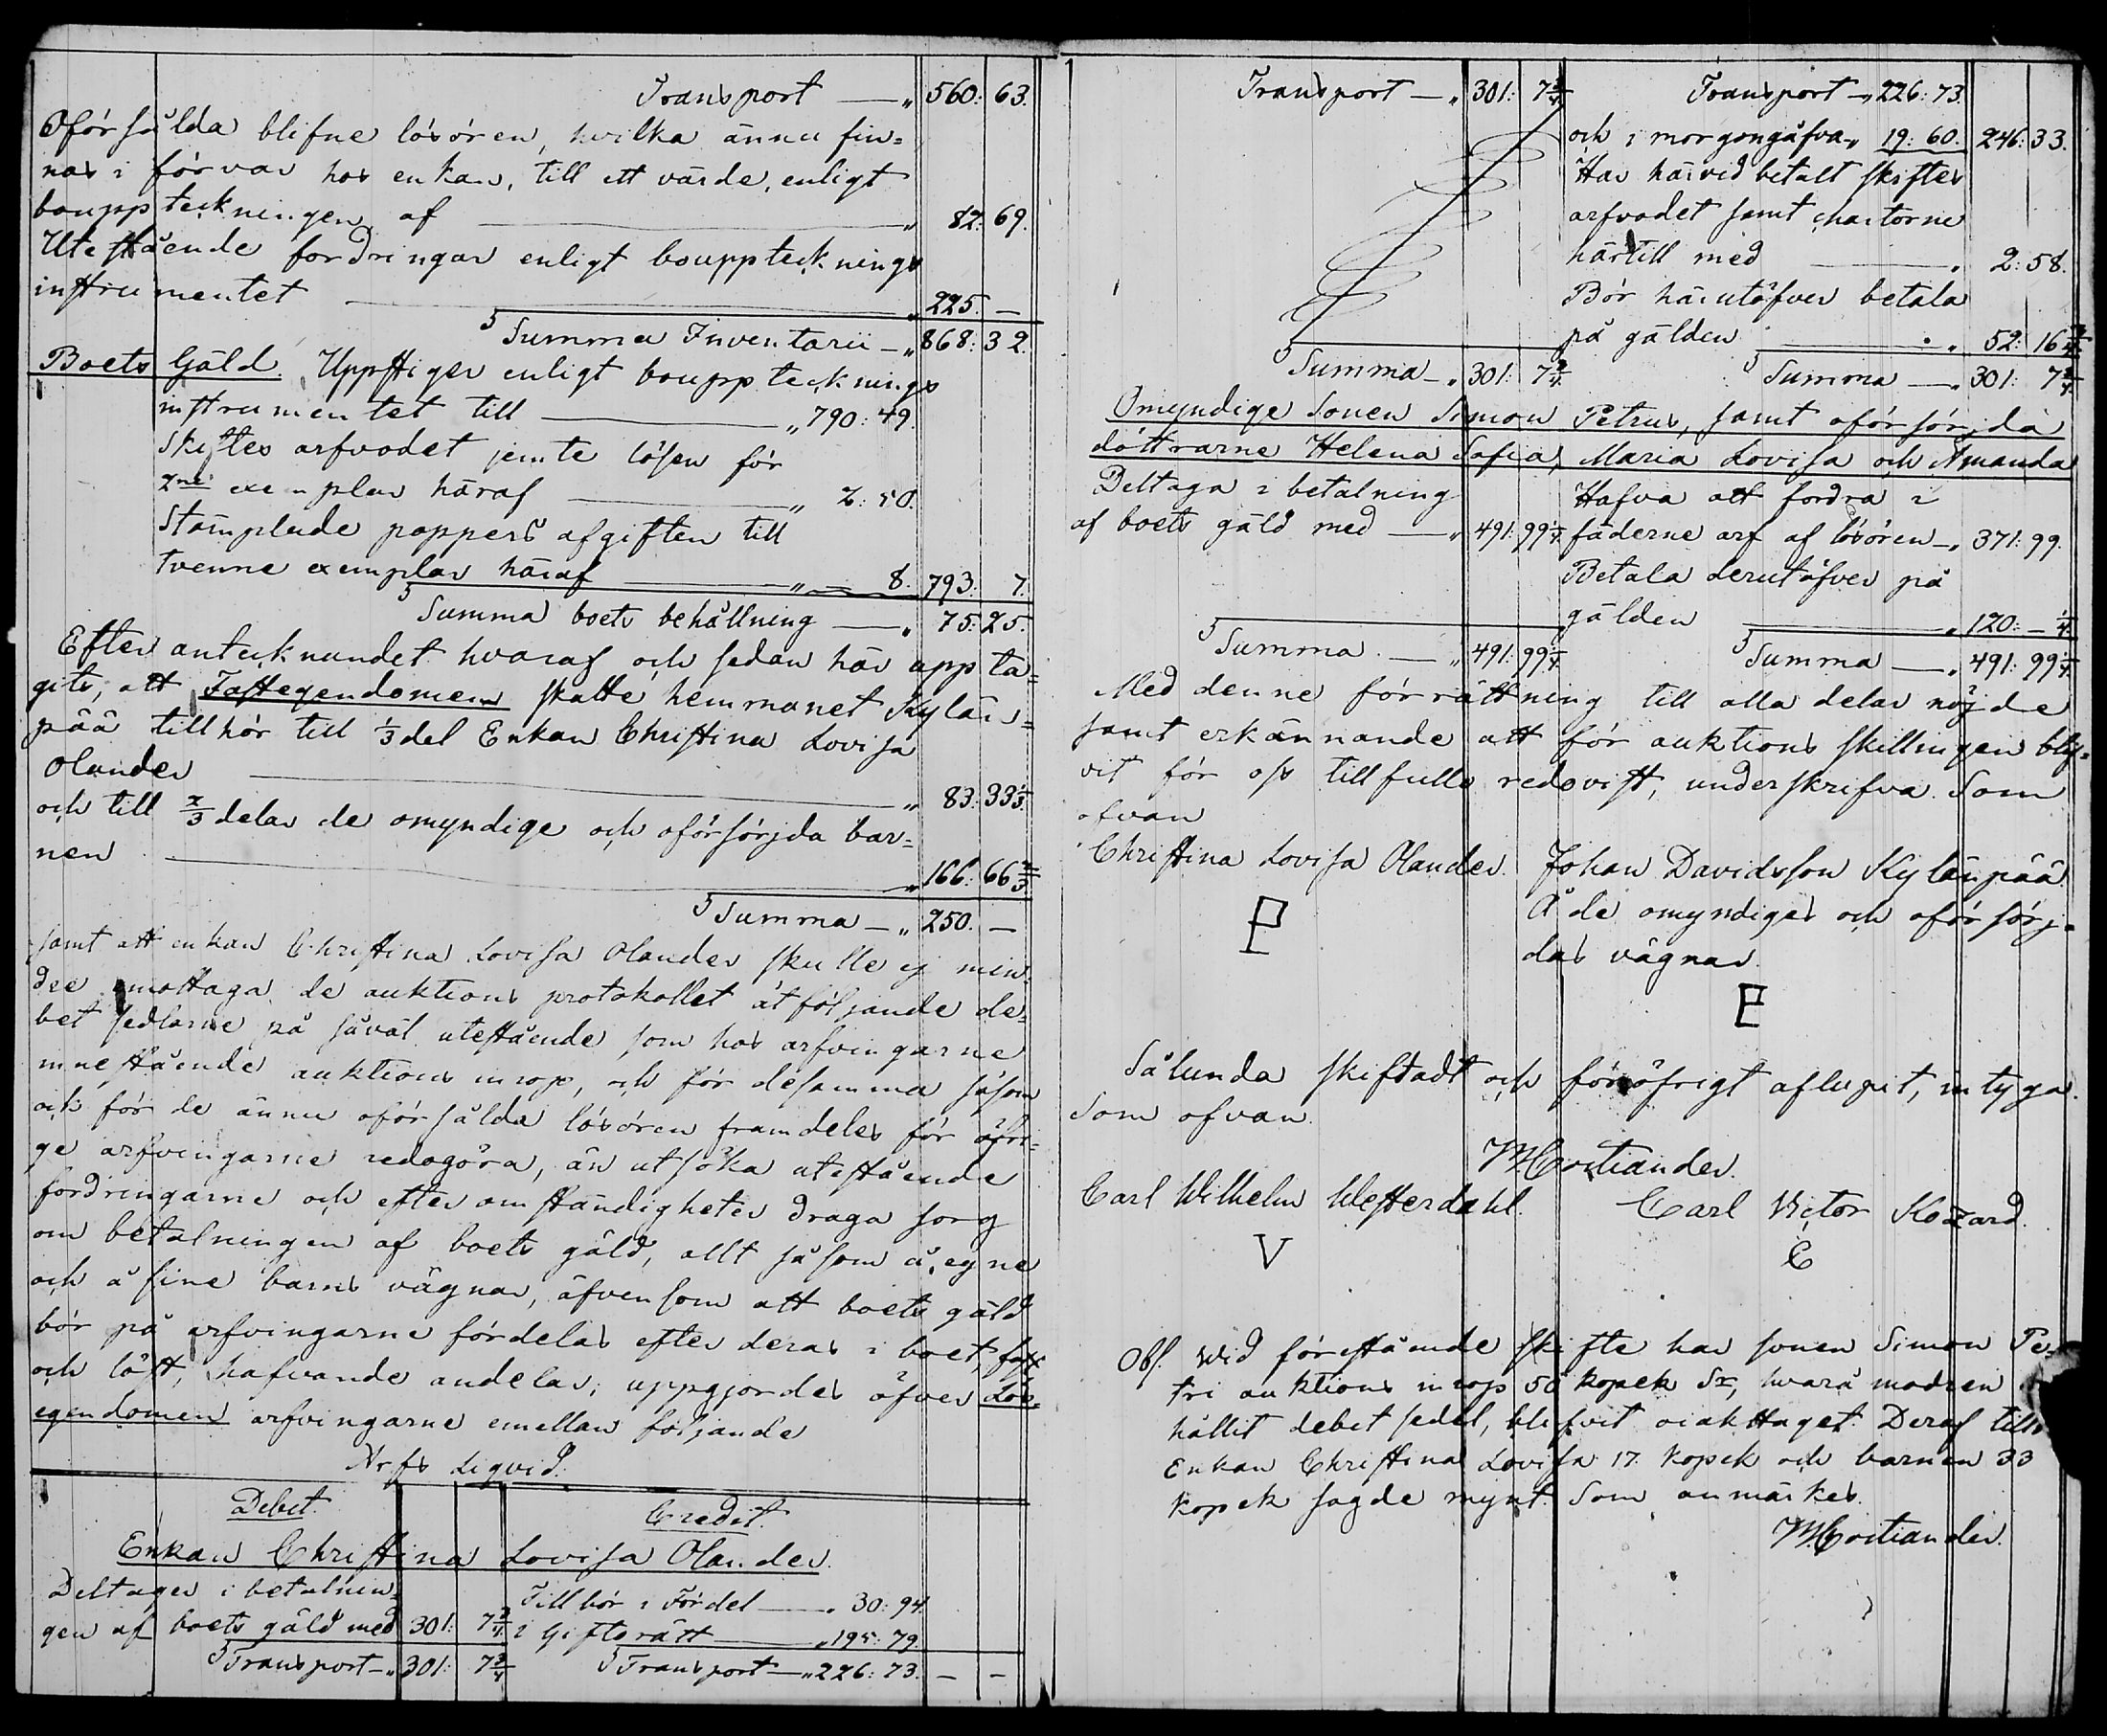 Transport — „ 560: 63.
Oförsålda blifne lösören, hvilka ännu fin=
nas i förvar hos enkan, till ett värde, enligt
bouppteckningen af — „ 82: 69.
Utestående fordringar enligt boupptecknings
instrumentet — „ 225. —
Summa Inventarii — „ 868: 32.
Boets Gäld. Uppstiger enligt boupptecknings
instrumentet till — „ 790: 49.
Skiftes arfvodet jemte lösen för
2ne exemplar häraf — „ 2: 50.
Stämplade pappers afgiften till
tvenne exemplar häraf — „ — 8. 793: 7.
Summa boets behållning — „ 75: 25.
Efter antecknandet hvaraf och sedan här uppta=
gits, att Fastegendomen skatte hemmanet Kylän=
pää tillhör till 1/3 del Enkan Christina Lovisa
Olander — „ 83: 33 1/3
och till 2/3 delar de omyndige och oförsörjda bar=
nen — „ 166: 66 2/3
Summa — „ 250. —
samt att enkan Christina Lovisa Olander skulle ej min=
dre emottaga de auktions protokollet åtföljande de=
bet sedlarne på såväl utestående som hos arfvingarne
innestående auktions inrop, och för desamma såsom
ock för de ännu oförsålda lösören framdeles för öfri=
ge arfvingarne redogöra, än utsöka utestående
fordringarne och efter omständigheter draga sorg
om betalningen af boets gäld, allt såsom å egne
och å sine barns vägnar, äfvensom att boets gäld
bör på arfvingarne fördelas efter deras i boet, fast
och löst, hafvande andelar; uppgjordes öfver Lös=
egendomen arfvingarne emellan följande
Arfs Liqvid.
Debet. Credit.
Enkan Christina Lovisa Olander.
Deltager i betalnin= Tillhör i Fördel — „ 30: 94.
gen af boets gäld med 301: 7 3/4 i Giftorätt — „ 195: 79.
Transport — „ 301: 7 3/4 Transport — „ 226: 73. — —
Transport — „ 301: 7 3/4 Transport — „ 226: 73.
och i morgongåfva „ 19: 60. 246: 33.
Har härvid betalt skiftes
arfvodet samt chartorne
härtill med — „ 2: 58.
Bör härutöfver betala
på gälden — „ 52: 16 3/4
Summa — „ 301: 7 3/4 Summa — „ 301: 7 3/4
Omyndige Sonen Simon Petrus, samt oförsörjda
döttrarne Helena Sofia, Maria Lovisa och Amanda
Deltaga i betalning Hafva att fordra i
af boets gäld med — „ 491: 99 1/4 fäderne arf af lösören — „ 371: 99.
Betala derutöfver på
gälden — „ 120: — 1/4
Summa — „ 491: 99 1/4 Summa — „ 491: 99 1/4
Med denne förrättning till alla delar nöjde
samt erkännande att för auktions skillingen blif=
vit för oss tillfullo redovist, underskrifva. Som
ofvan
Christina Lovisa Olander. Johan Davidsson Kylänpää.
Å de omyndiges och oförsörj=
das vägnar.
Sålunda skiftadt och föröfrigt aflupit, intyga.
Som ofvan.
Carl Wilhelm Westerdahl. Carl Victor Kozard.
V C
Obs. Wid förestående skifte har sonen Simon Pe=
tri auktions inrop 50 kopek Sr, hvarå modren
hållit debet sedel, blifvit oiakttaget. Deraf till
Enkan Christina Lovisa 17. kopek och barnen 33
kopek sagde mynt. Som anmärkes.